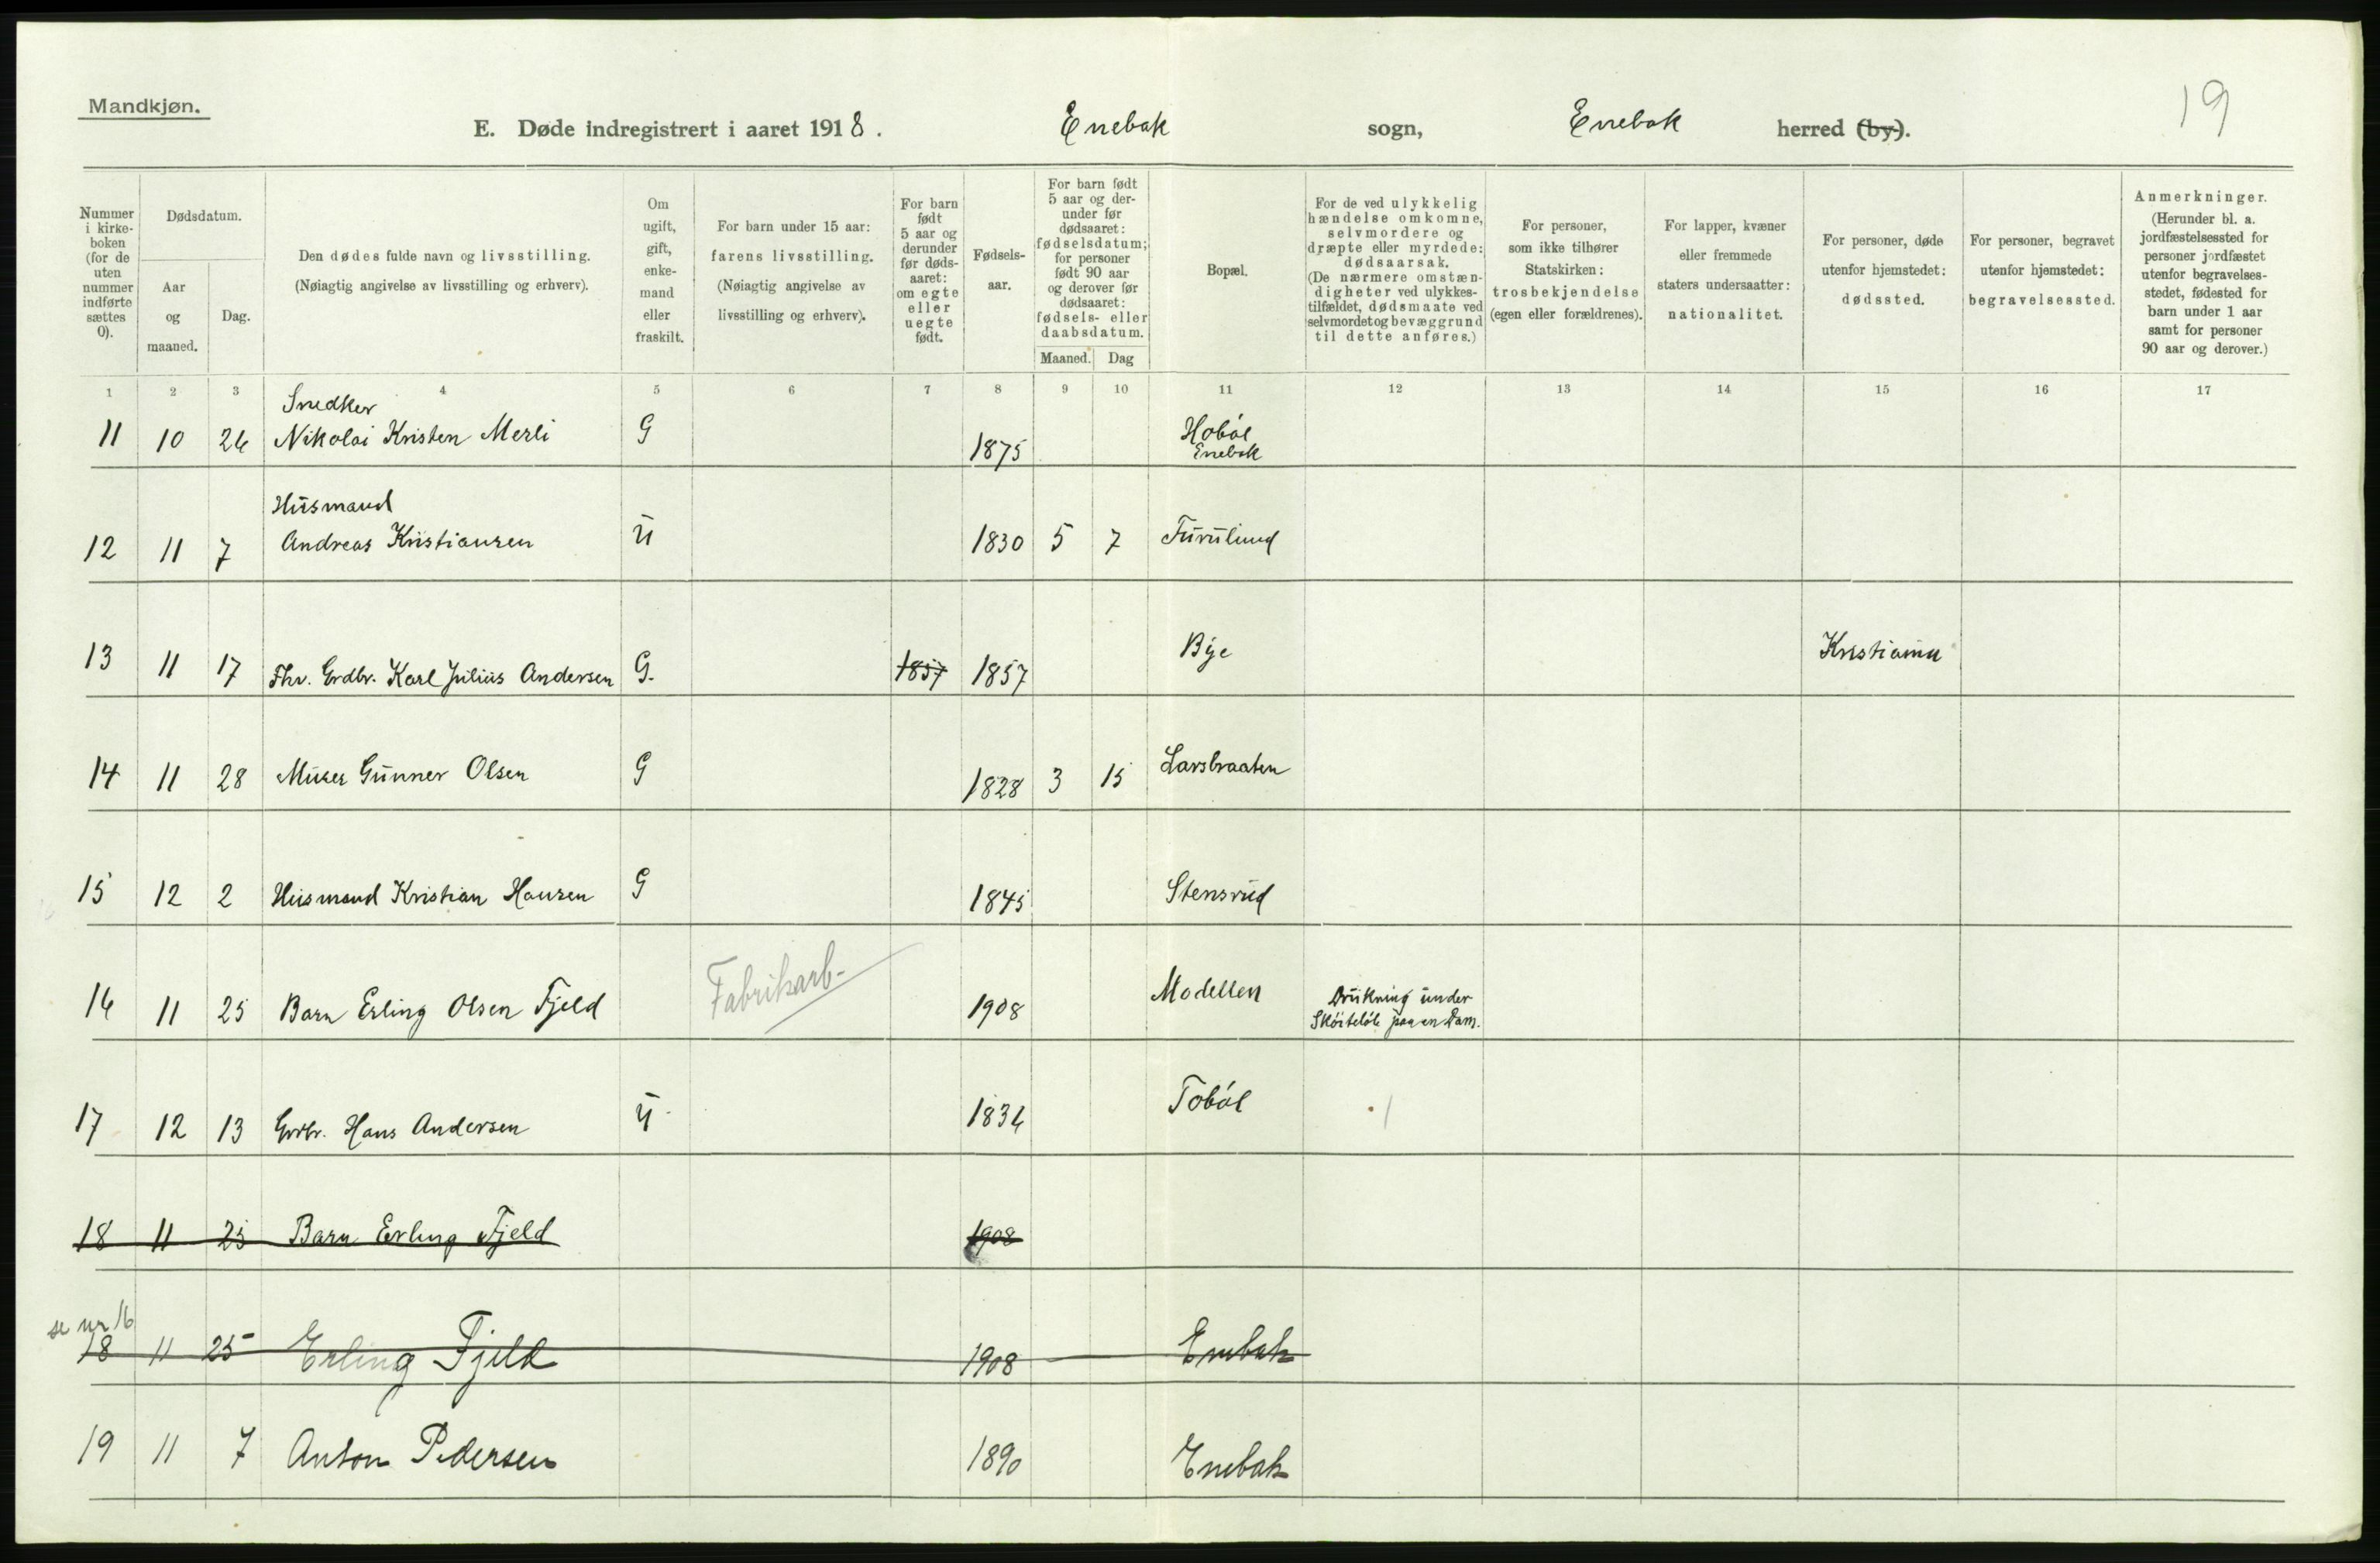 Mandkjøn.
E. Døde indregistrert i aaret 1918. Enebak sogn, Enebak herred (by).
19
Nummer i kirke-boken (for de uten nummer indførte sættes 0).
Dødsdatum.
Aar og maaned.
Dag.
Den dødes fulde navn og livsstilling.
(Nøiagtig angivelse av livsstilling og erhverv).
Om ugift, gift, enke-mand eller fraskilt.
For barn under 15 aar: farens livsstilling.
(Nøiagtig angivelse av livsstilling og erhverv).
For barn født 5 aar og derunder før døds-aaret: om egte eller uegte født.
Fødsels-aar.
For barn født 5 aar og der-under før dødsaaret: fødselsdatum; for personer født 90 aar og derover før dødsaaret: fødsels- eller daabsdatum.
Maaned. Dag
Bopæl.
For de ved ulykkelig hændelse omkomne, selvmordere og dræpte eller myrdede: dødsaarsak.
(De nærmere omstæn-digheter ved ulykkes-tilfældet, dødsmaate ved selvmordet og bevæggrund til dette anføres.)
For personer, som ikke tilhører Statskirken: trosbekjendelse (egen eller forældrenes).
For lapper, kvæner eller fremmede staters undersaatter: nationalitet.
For personer, døde utenfor hjemstedet: dødssted.
For personer, begravet utenfor hjemstedet: begravelsessted.
Anmerkninger.
(Herunder bl. a. jordfæstelsessted for personer jordfæstet utenfor begravelses-stedet, fødested for barn under 1 aar samt for personer 90 aar og derover.)
1 2 3 4 5 6 7 8 9 10 11 12 13 14 15 16 17
Snedker
11 10 26 Nikolai Kristen Merli G 1875 Hobøl
Enebak
Husmand
12 11 7 Andreas Kristiansen U 1830 5 7 Furulund
13 11 17 Fhv. Grdbr. Karl Julius Andersen G. 1857 1857 Bye Kristiania
14 11 28 Murer Gunner Olsen G 1828 3 15 Larsbraaten
15 12 2 Husmand Kristian Hansen G 1845 Stensrud
16 11 25 Barn Erling Olsen Fjeld Fabrikarb- 1908 Modellen Drukning under
Skøiteløb paa en Dam.
17 12 13 Grbr. Hans Andersen U 1836 Tobøl
18 11 25 Barn Erling Fjeld 1908
se nr 16
18 11 25 Erling Fjeld 1908 Enebak
19 11 7 Anton Pedersen 1890 Enebak